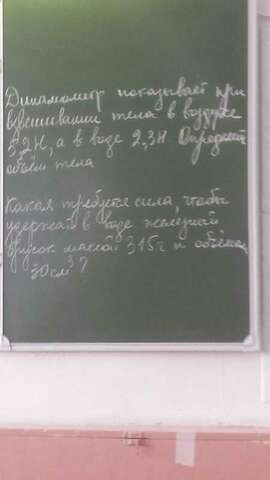 Динамометр показывает при
взвешивании тела в воздухе
5,2Н, а в воде 2,3Н Определ
объём тела
Какая требуется сила, чтобы
удержать в воде железный
брусок массой 315г и объёмом
30см³?